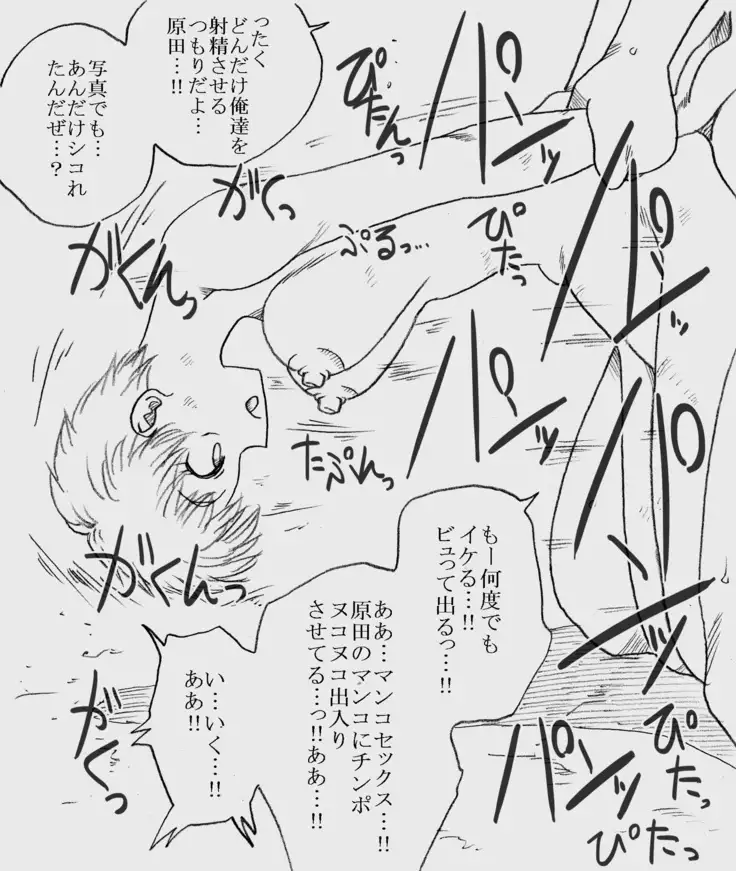 ったく
どんだけ俺達を
射精させる
つもりだよ…
原田…!!
写真でも…
あんだけシコれ
たんだぜ…?
パンッ
ぴたんっ
がくっ
がくんっ
ぷるっ…
ぴたっ
パンッ
パンッ
たぷれっ
パンッ
がくんっ
もー何度でも
イケる…!!
ビュって出るっ…!!
ああ…マンコセックス…!!
原田のマンコにチンポ
ヌコヌコ出入り
させてる…っ!!ああ…!!
い…いく…!!
ああ!!
がくっ
パンッ
ぴたっ
ぴたっ